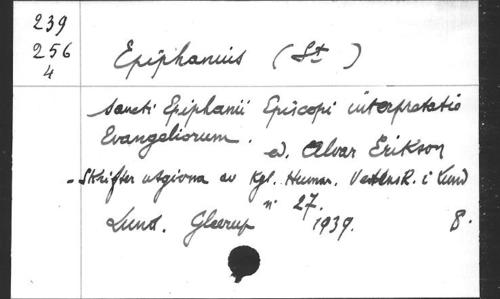 239
256
4
Epiphanius (St)
Sancti Epiphanii Episcopi interpretatio
Evangeliorum.
ed. Alvar Erikson
- Skrifter utgivna av Kgl. Human. VetensK. i Lund
n° 27.
Lund. Gleerup 1939. 8.